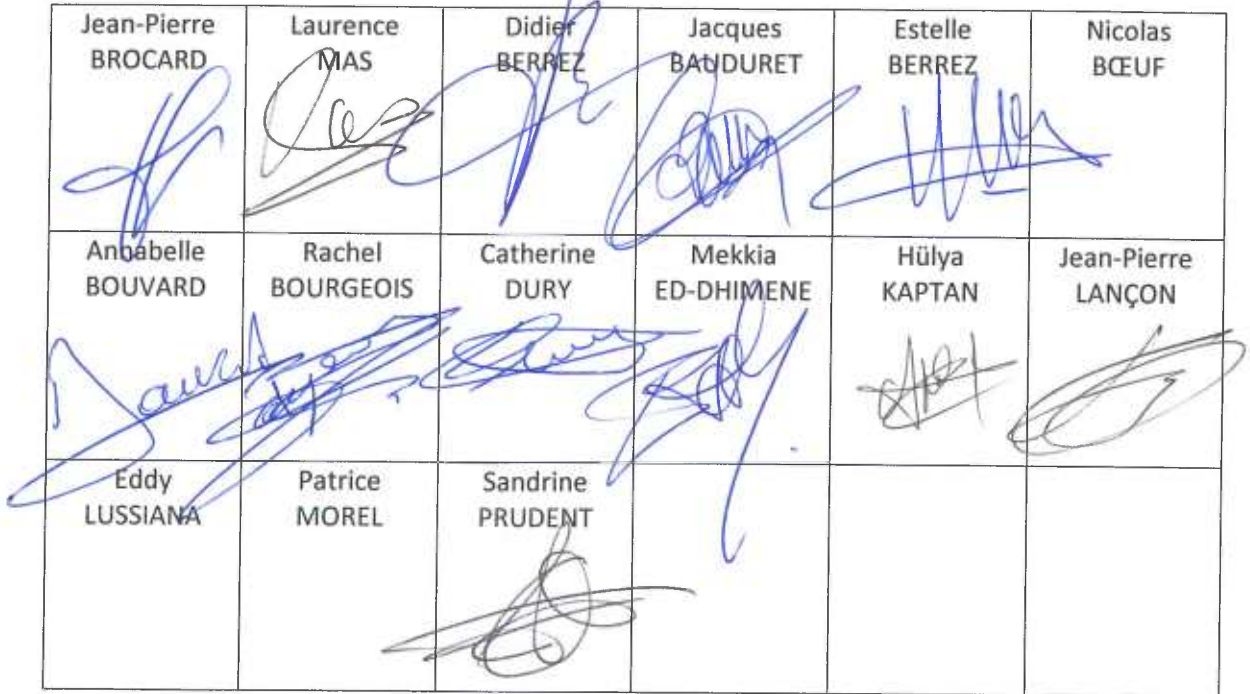 Jean-Pierre
BROCARD
Laurence
MAS
Didier
BERREZ
Jacques
BAUDURET
Estelle
BERREZ
Nicolas
BŒUF
Annabelle
BOUVARD
Rachel
BOURGEOIS
Catherine
DURY
Mekkia
ED-DHIMENE
Hülya
KAPTAN
Jean-Pierre
LANÇON
Eddy
LUSSIANA
Patrice
MOREL
Sandrine
PRUDENT